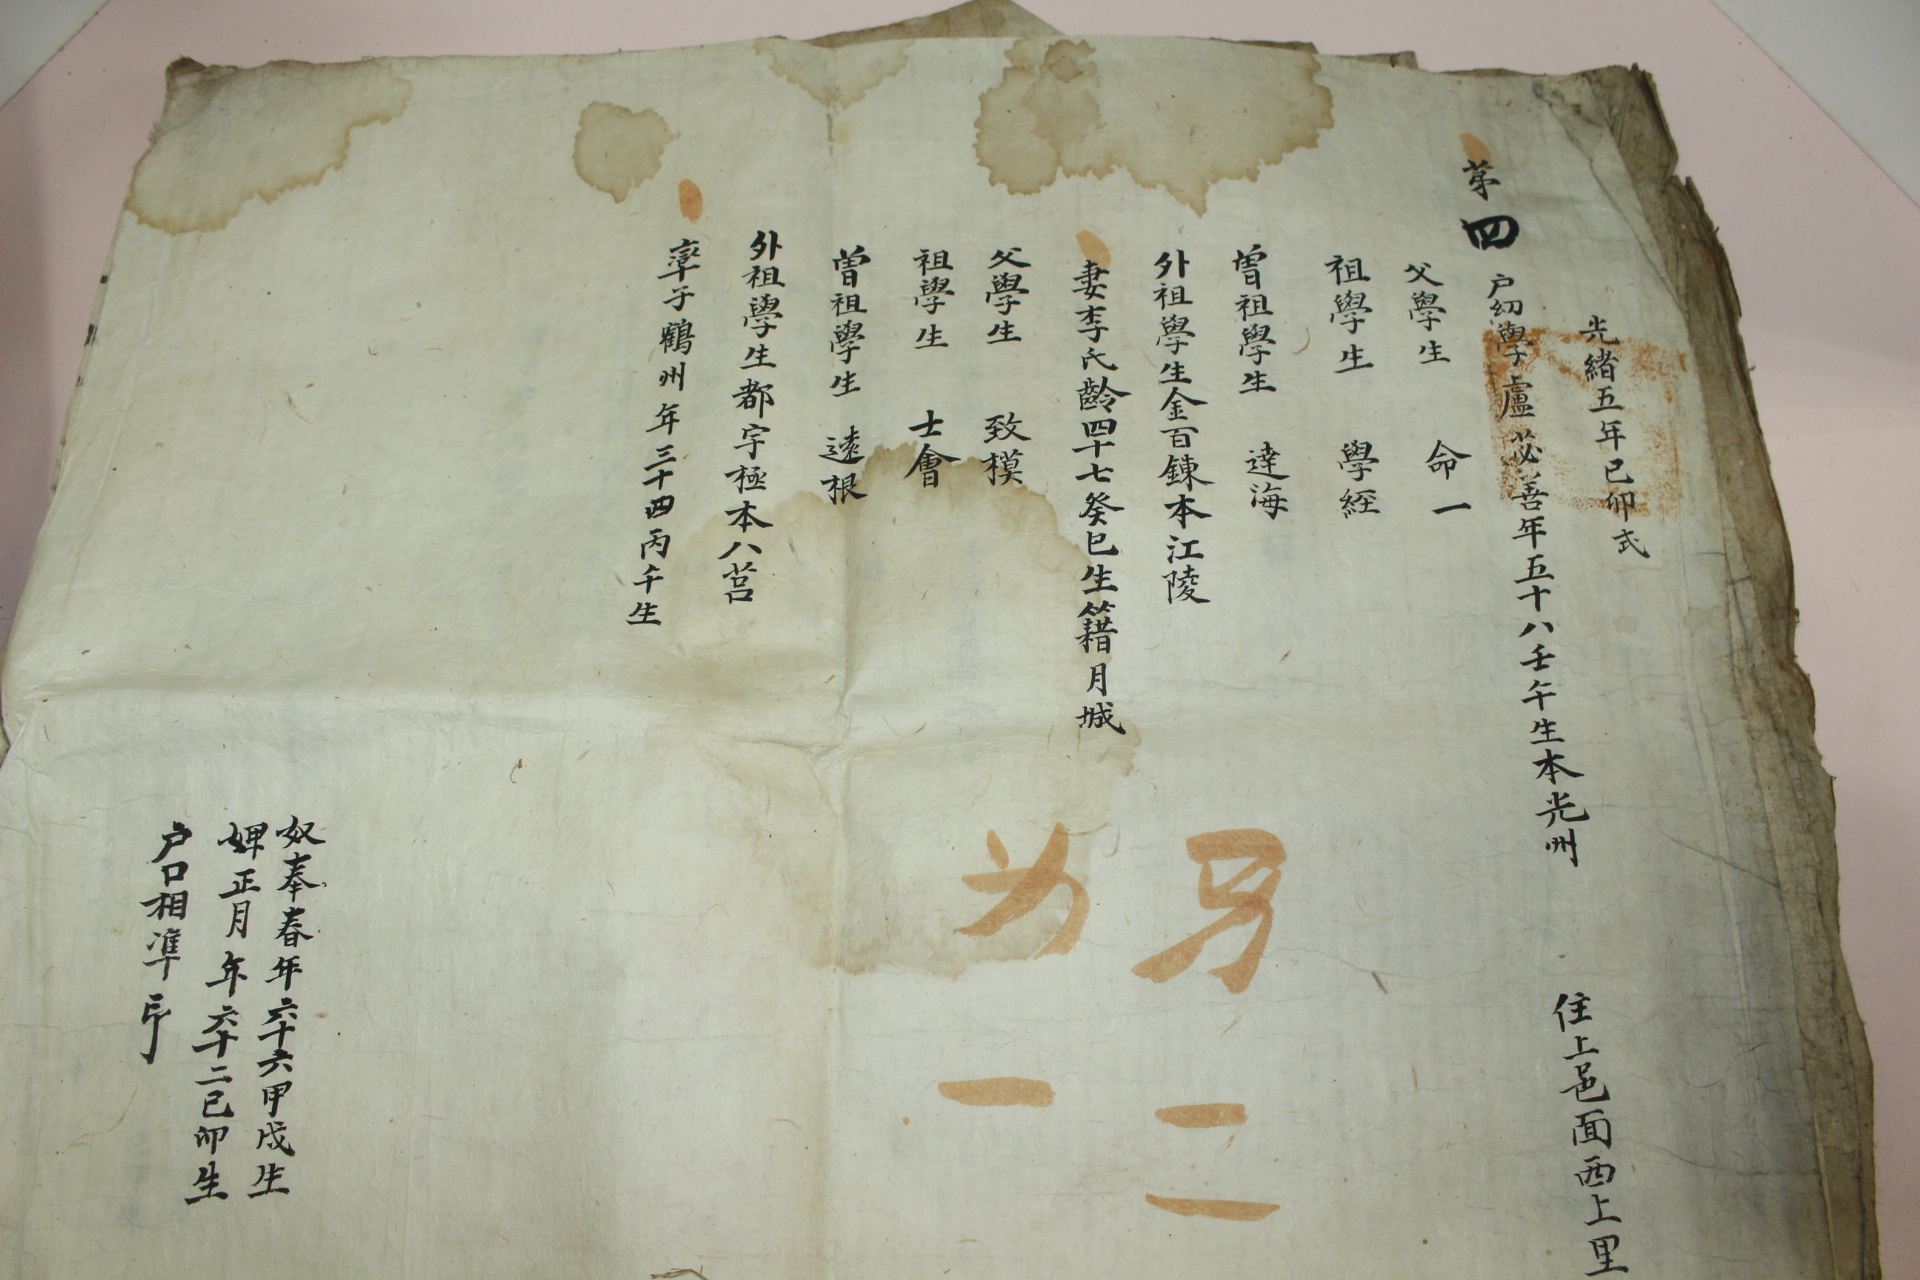 光緒五年己卯式
住上邑面西上里
第四
戶幼學盧必善年五十八壬午生本光州
父學生 命一
祖學生 學經
曾祖學生 達海
外祖學生金百鍊本江陵
妻李氏齡四十七癸巳生籍月城
父學生 致模
祖學生 士會
曾祖學生 遠根
外祖學生都宇極本八莒
率子鶴州年三十四丙午生
男二
奴奉春年六十六甲戌生
婢正月年六十二己卯生
戶口相準印